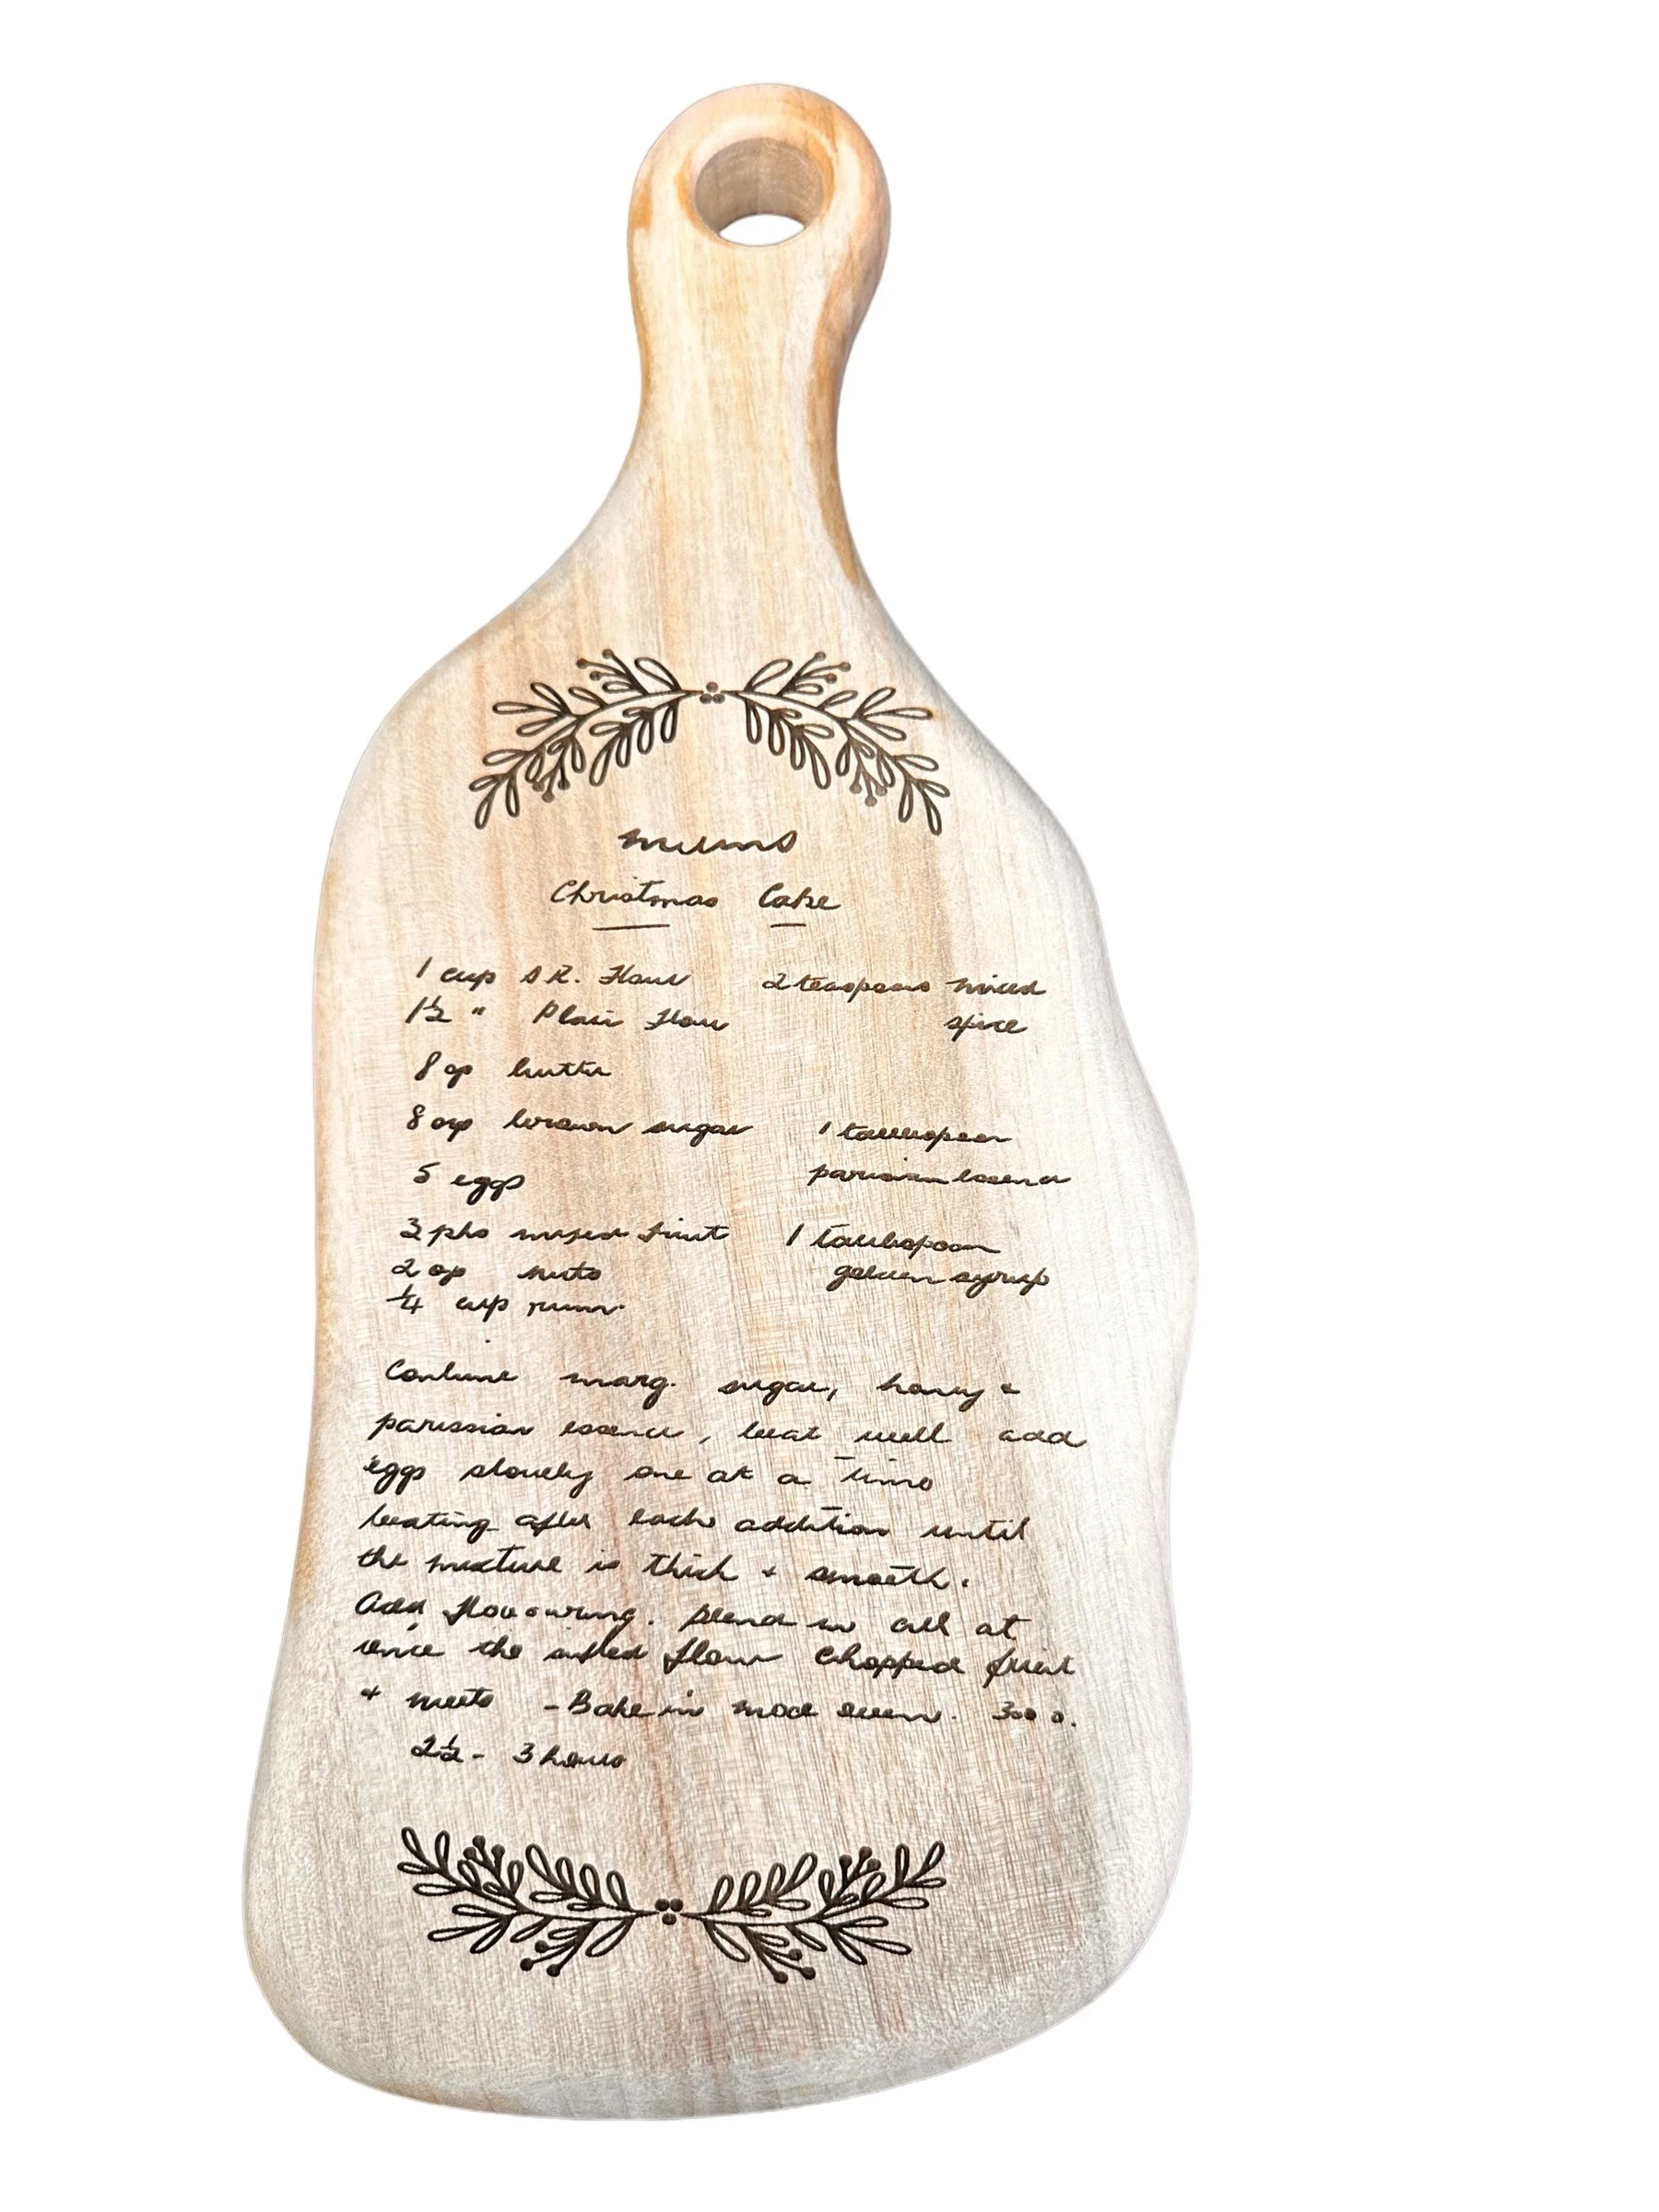 Mums
Christmas Cake
1 cup S R. Flour
1½ " Plain Flour
8 oz butter
8 oz brown sugar
5 eggs
3 pks mixed fruit
2 oz nuts
¼ cup rum
2 teaspoons mixed
spice
1 tablespoon
parisian essence
1 tablespoon
golden syrup
Combine marg. sugar, honey &
parissian essence, beat well add
eggs slowly one at a time
beating after each addition until
the mixture is thick & smooth.
Add flavouring. blend in all at
once the sifted flour chopped fruit
& nuts - Bake in mod oven. 300 o.
2½ - 3 hours